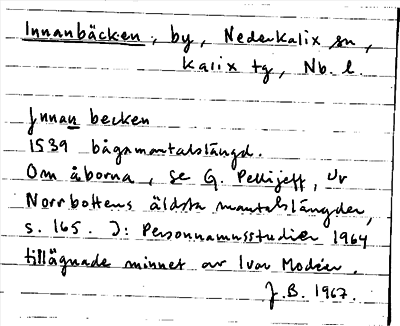 Innanbäcken, by, Nederkalix sn,
Kalix tg, Nb. l.
Jnnan becken
1539 bågamantalslängd.
Om åborna, se G. Pellijeff, Ur
Norrbottens äldsta mantalslängder,
s. 165. I: Personnamnsstudier 1964
tillägnade minnet av Ivar Modéer.
J.B. 1967.